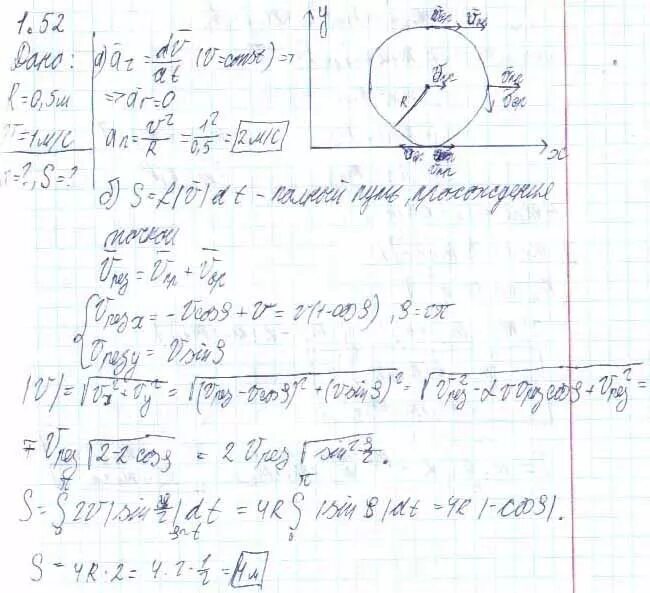 1.52
Дано:
R = 0,5м
V = 1м/с
a = ?, S = ?
а) a̅τ = dv̅/dt (V = const) =>
=> aτ = 0
an = v²/R = 1²/0,5 = 2 м/с
y
x
R
V̅пр
б) S = ∫|v̅|dt – полный путь, прохождение
точкой
V̅рез = V̅пр + V̅вр
Vрез x = -Vcosϑ + V = v(1-cosϑ)
Vрез y = Vsinϑ
|V| = √(Vx² + Vy²) = √((Vрез - vcosϑ)² + (Vsinϑ)²) = √(Vрез² - 2VVрезcosϑ + Vрез²) =
= Vрез √(2-2cosϑ) = 2Vрез √(sin² ϑ/2).
S = ∫ 2V|sin ϑ/2|dt = 4R ∫ |sin ϑ|dt = 4R|-cosϑ|.
S = 4R·2 = 4·2·1/2 = 4м